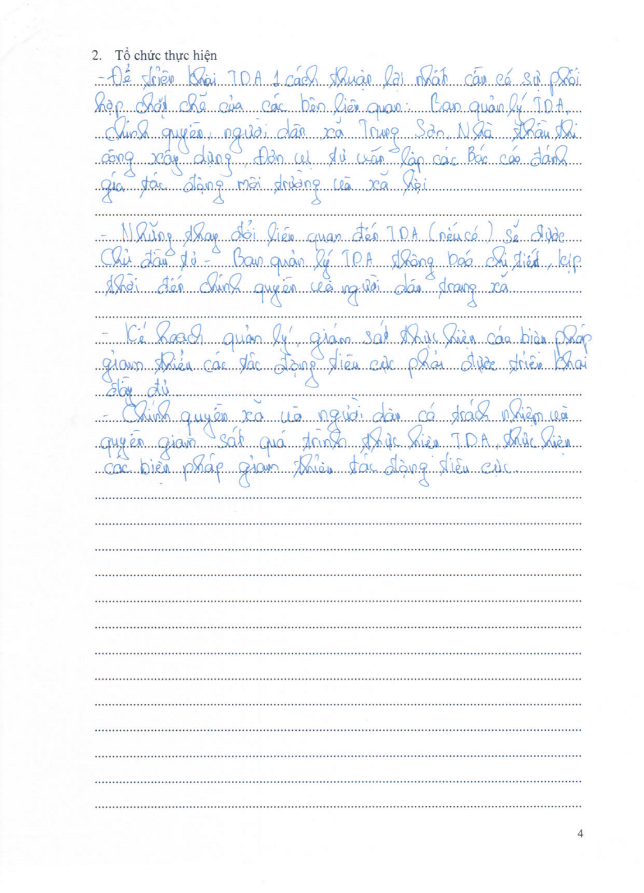 2. Tổ chức thực hiện
- Để triển khai TDA 1 cách thuận lợi nhất cần có sự phối
hợp chặt chẽ của các bên liên quan: Ban quản lý TDA,
chính quyền, người dân xã Trung Sơn, Nhà thầu thi
công xây dựng, Đơn vị tư vấn lập các Báo cáo đánh
giá tác động môi trường và xã hội.
- Những thay đổi liên quan đến TDA (nếu có) sẽ được
Chủ đầu tư - Ban quản lý TDA thông báo chi tiết, kịp
thời đến chính quyền và người dân trong xã
- Kế hoạch quản lý, giám sát thực hiện các biện pháp
giảm thiểu các tác động tiêu cực phải được triển khai
đầy đủ
- Chính quyền xã và người dân có trách nhiệm và
quyền giám sát quá trình thực hiện TDA, thực hiện
các biện pháp giảm thiểu tác động tiêu cực
4